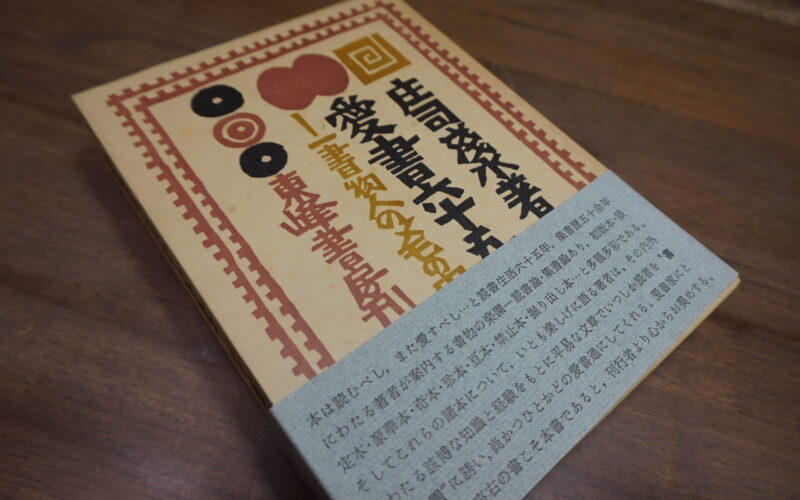 庄司浅水著
愛書六十五
ー一書物人のメモの中
東峰書房刊
本は読むべし，また愛すべし…と読書生活六十五年，集書歴五十余年
にわたる著者が案内する書物の楽園―読書論・集書論あり，初版本・限
定本・豪華本・奇本・珍本・豆本・禁止本・掘り出し本…と多種多彩である。
そしてこれらの諸本について，いとも楽しげに語る著者は，その内外
わたる該博な知識と経験をもとに平易な文章でいつしか読者を“書
”に誘い，尚かつひとかどの愛書通にしてくれる。愛書家にと
座右の書こそ本書であると，刊行者より心からお奨めする。